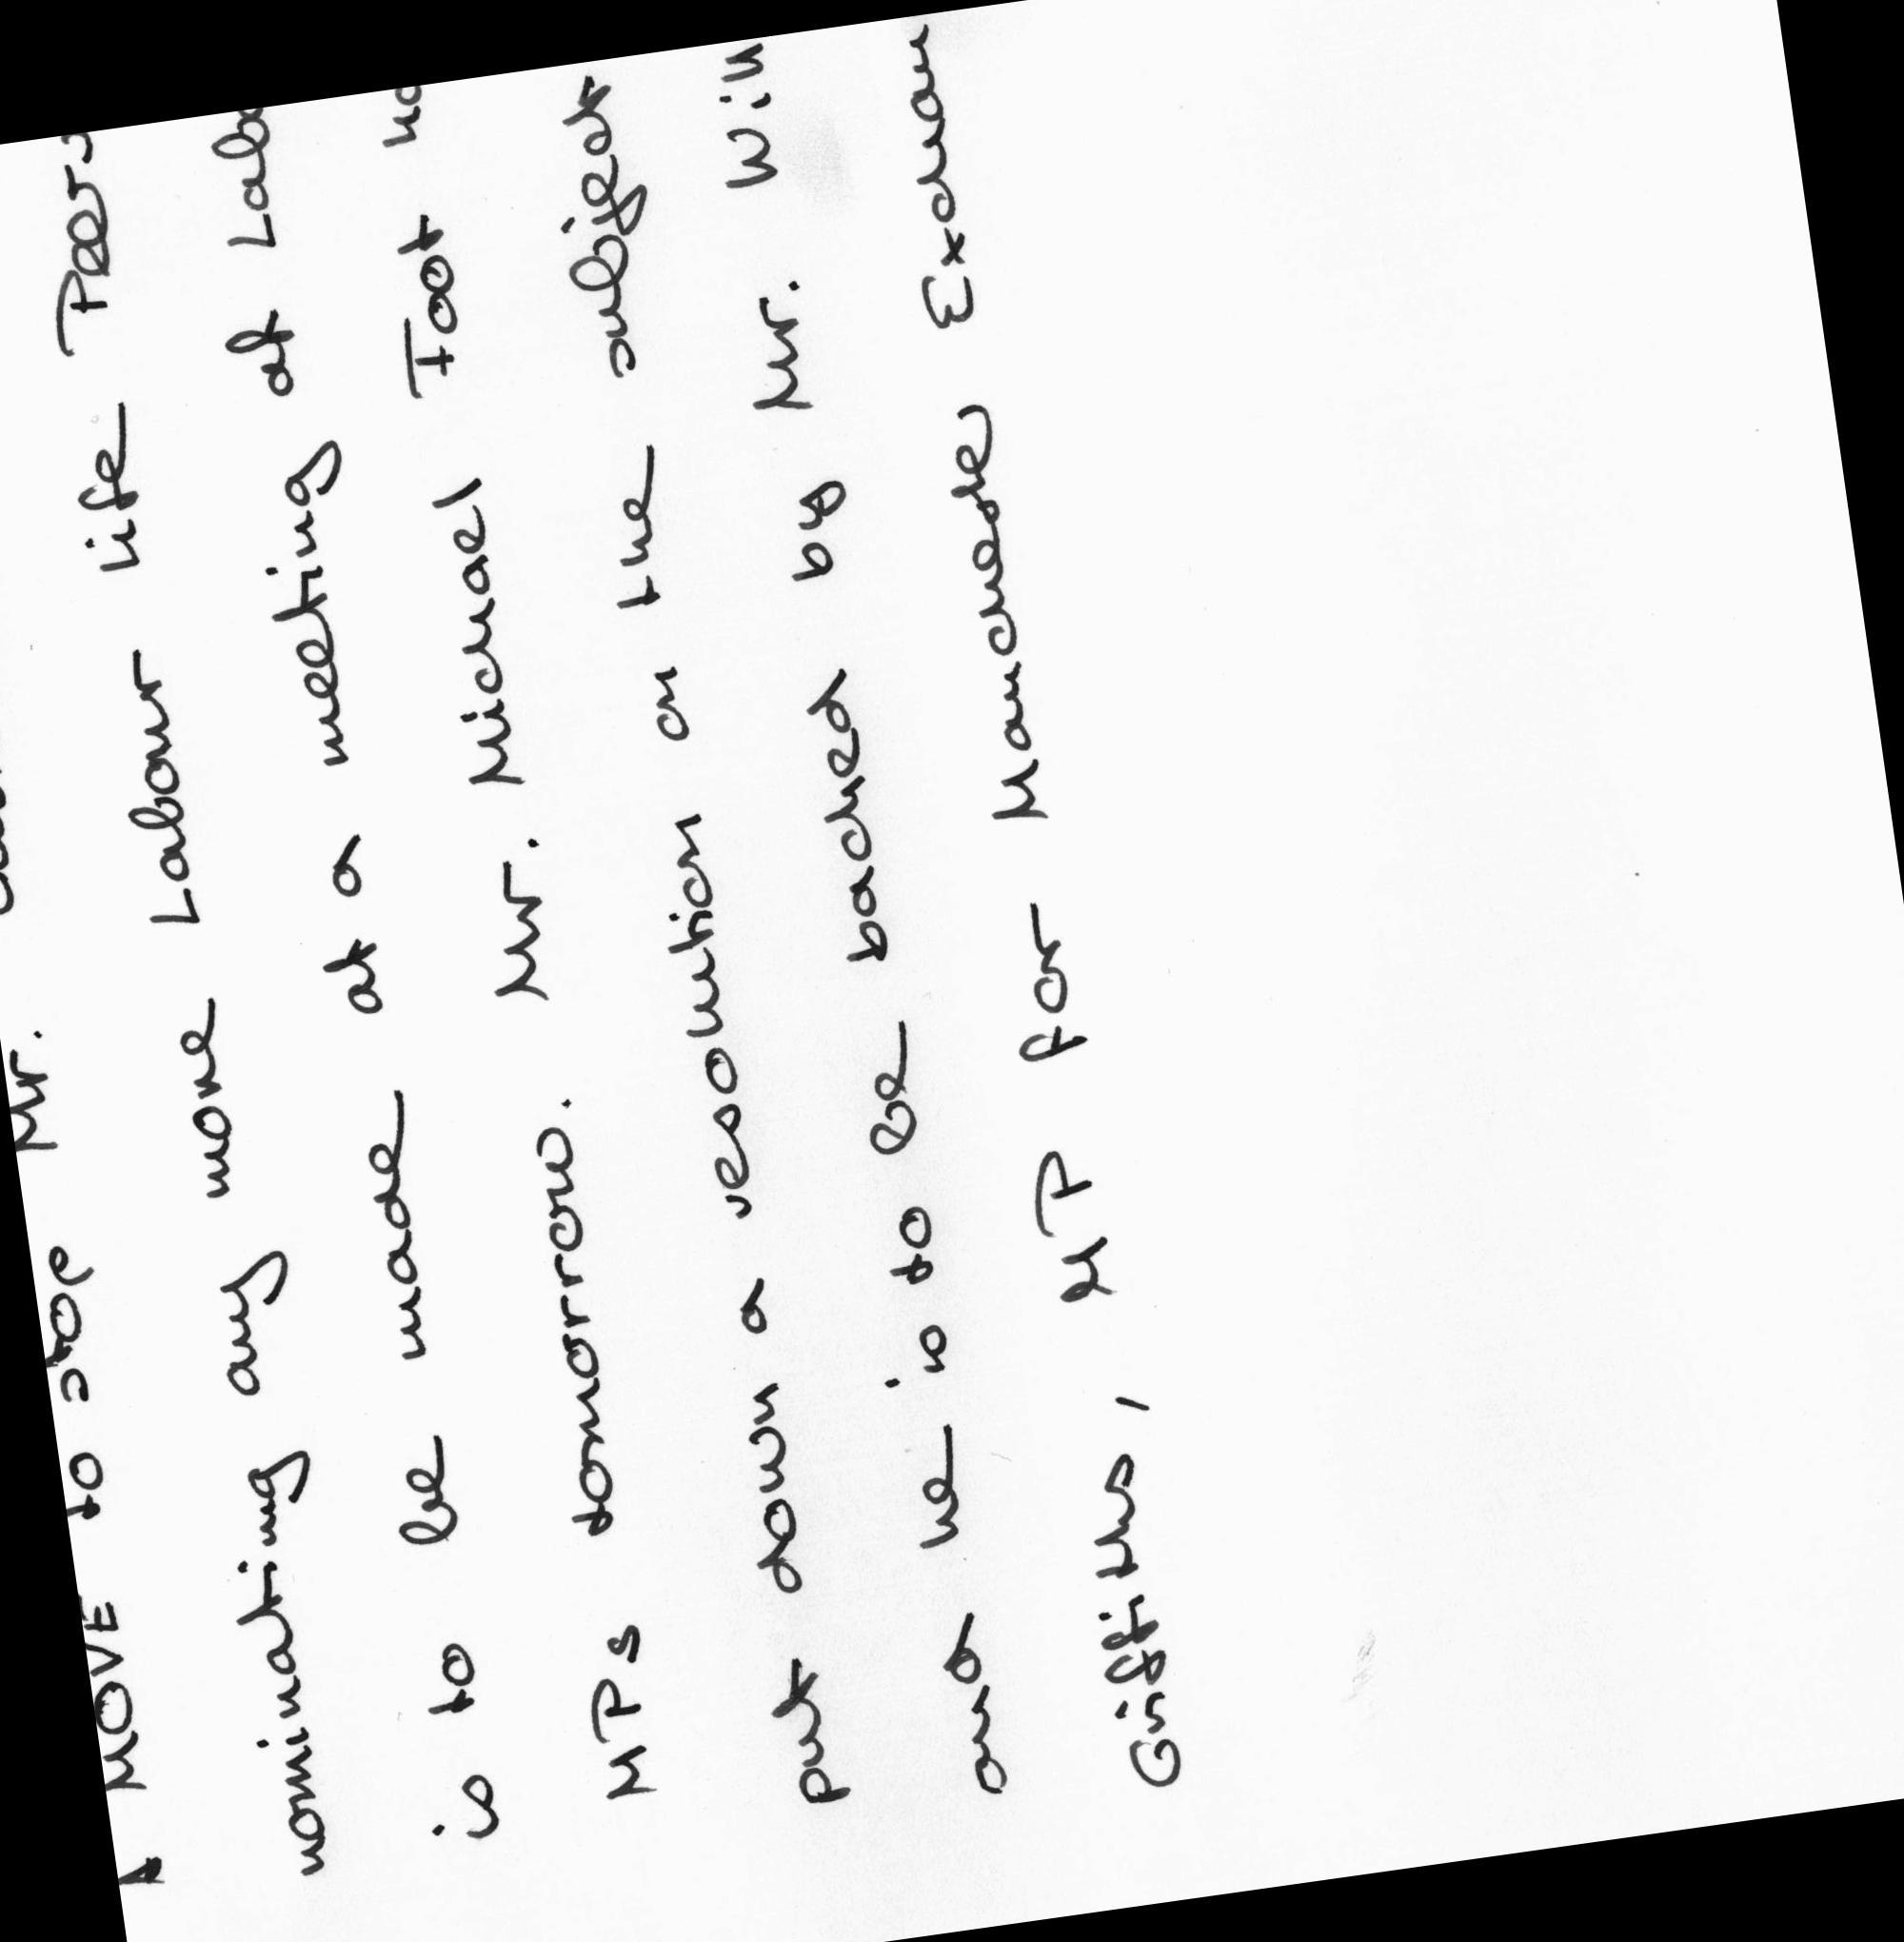 A MOVE to stop Mr.
nominating any more Labour life Peers
is to be made at a meeting of Labo
MPs tomorrow. Mr. Michael Foot ha
put down a resolution on the subject
and he is to be backed by Mr. Will
Griffiths, MP for Manchester Exchan